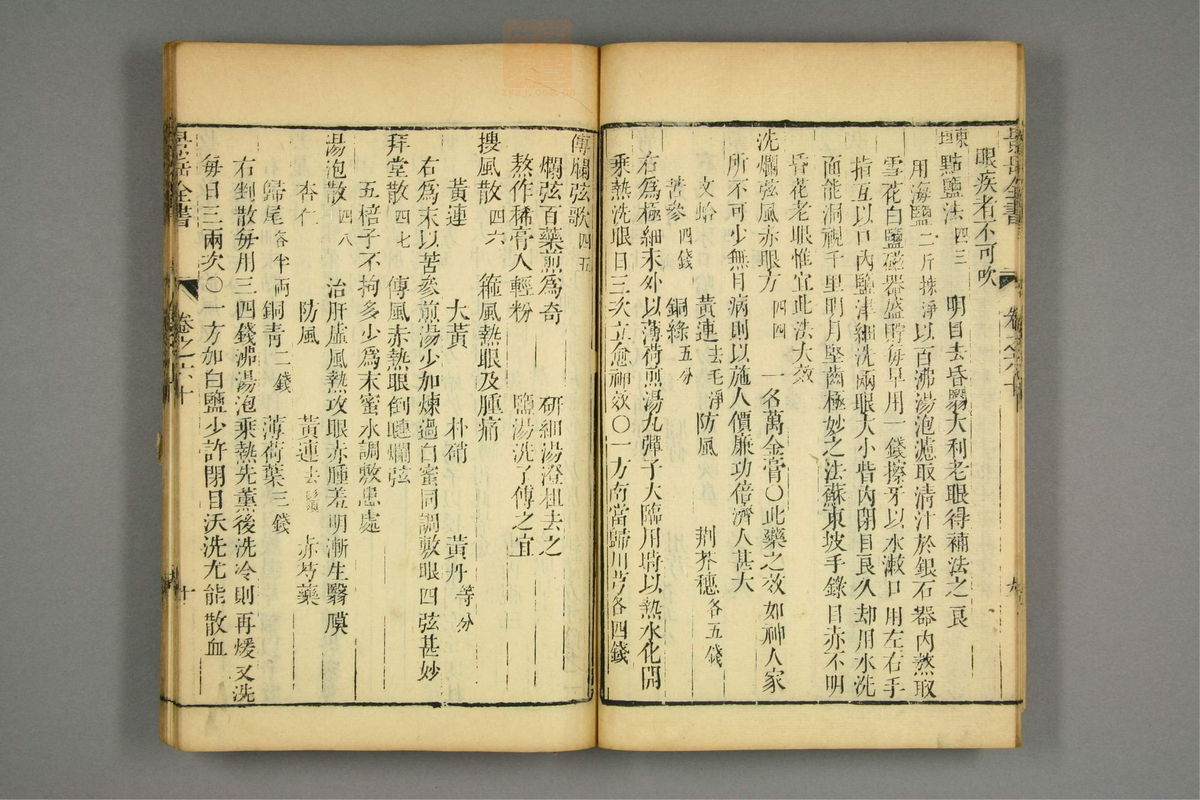 景岳全書
卷之六十
九
眼疾者不可吹
東垣點鹽法 四三 明目去昏翳大利老眼得補法之良
用海鹽 二斤揀淨 以百沸湯泡濾取清汁於銀石器內熬取
雪花白鹽磁器盛貯每早用一錢擦牙以水漱口用左右手
指互以口內鹽津細洗兩眼大小眥內閉目良久却用水洗
面能洞視千里明月堅齒極妙之法蘇東坡手錄目赤不明
昏花老眼惟宜此法大效
洗爛弦風赤眼方 四四 一名萬金膏○此藥之效如神人家
所不可少無目病則以施人價廉功倍濟人甚大
文蛤 黃連 去毛淨 防風 荆芥穗 各五錢
苦參 四錢 銅綠 五分
右爲極細末外以薄荷煎湯丸彈子大臨用時以熱水化開
乘熱洗眼日三次立愈神效○一方有當歸川芎各四錢
傅爛弦歌 四五
爛弦百藥煎爲奇 研細湯澄柤去之
熬作稀膏入輕粉 鹽湯洗了傅之宜
搜風散 四六 箍風熱眼及腫痛
黃連 大黃 朴硝 黃丹 等分
右爲末以苦參煎湯少加煉過白蜜同調敷眼四弦甚妙
拜堂散 四七 傅風赤熱眼倒睫爛弦
五棓子不拘多少爲末蜜水調敷患處
湯泡散 四八 治肝虛風熱攻眼赤腫羞明漸生翳膜
杏仁 防風 黃連 去鬚 赤芍藥
歸尾 各半兩 銅青 二錢 薄荷葉 三錢
右剉散每用三四錢沸湯泡乘熱先薰後洗冷則再煖又洗
每日三兩次○一方加白鹽少許閉目沃洗尤能散血
景岳全書
卷之六十
十